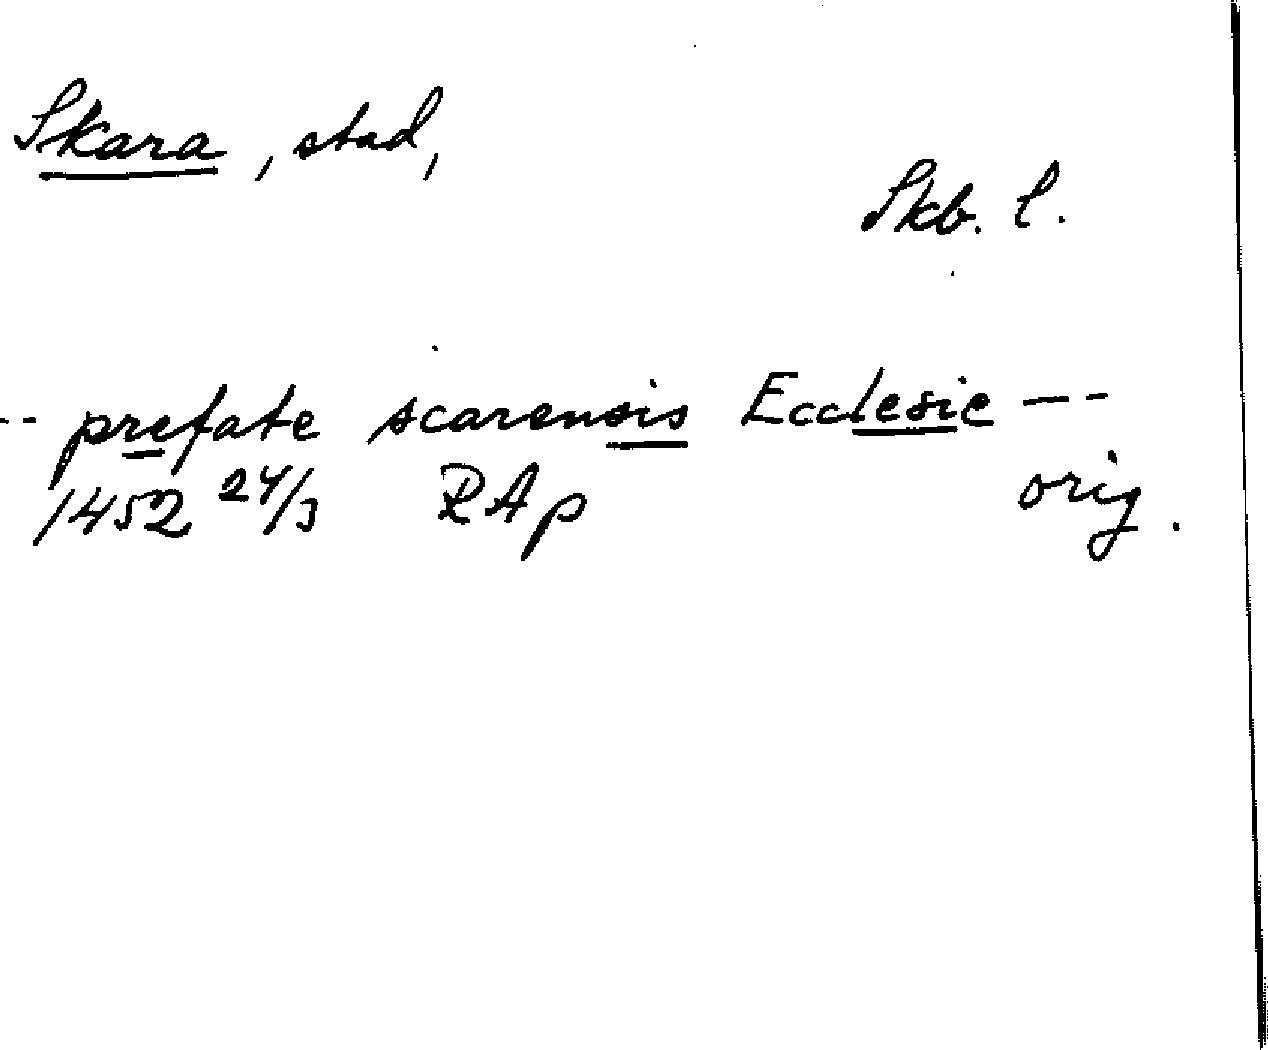 Skara, stad,
Skb. l.
-- prefate scarensis Ecclesie --
1452 24/3 RAp orig.